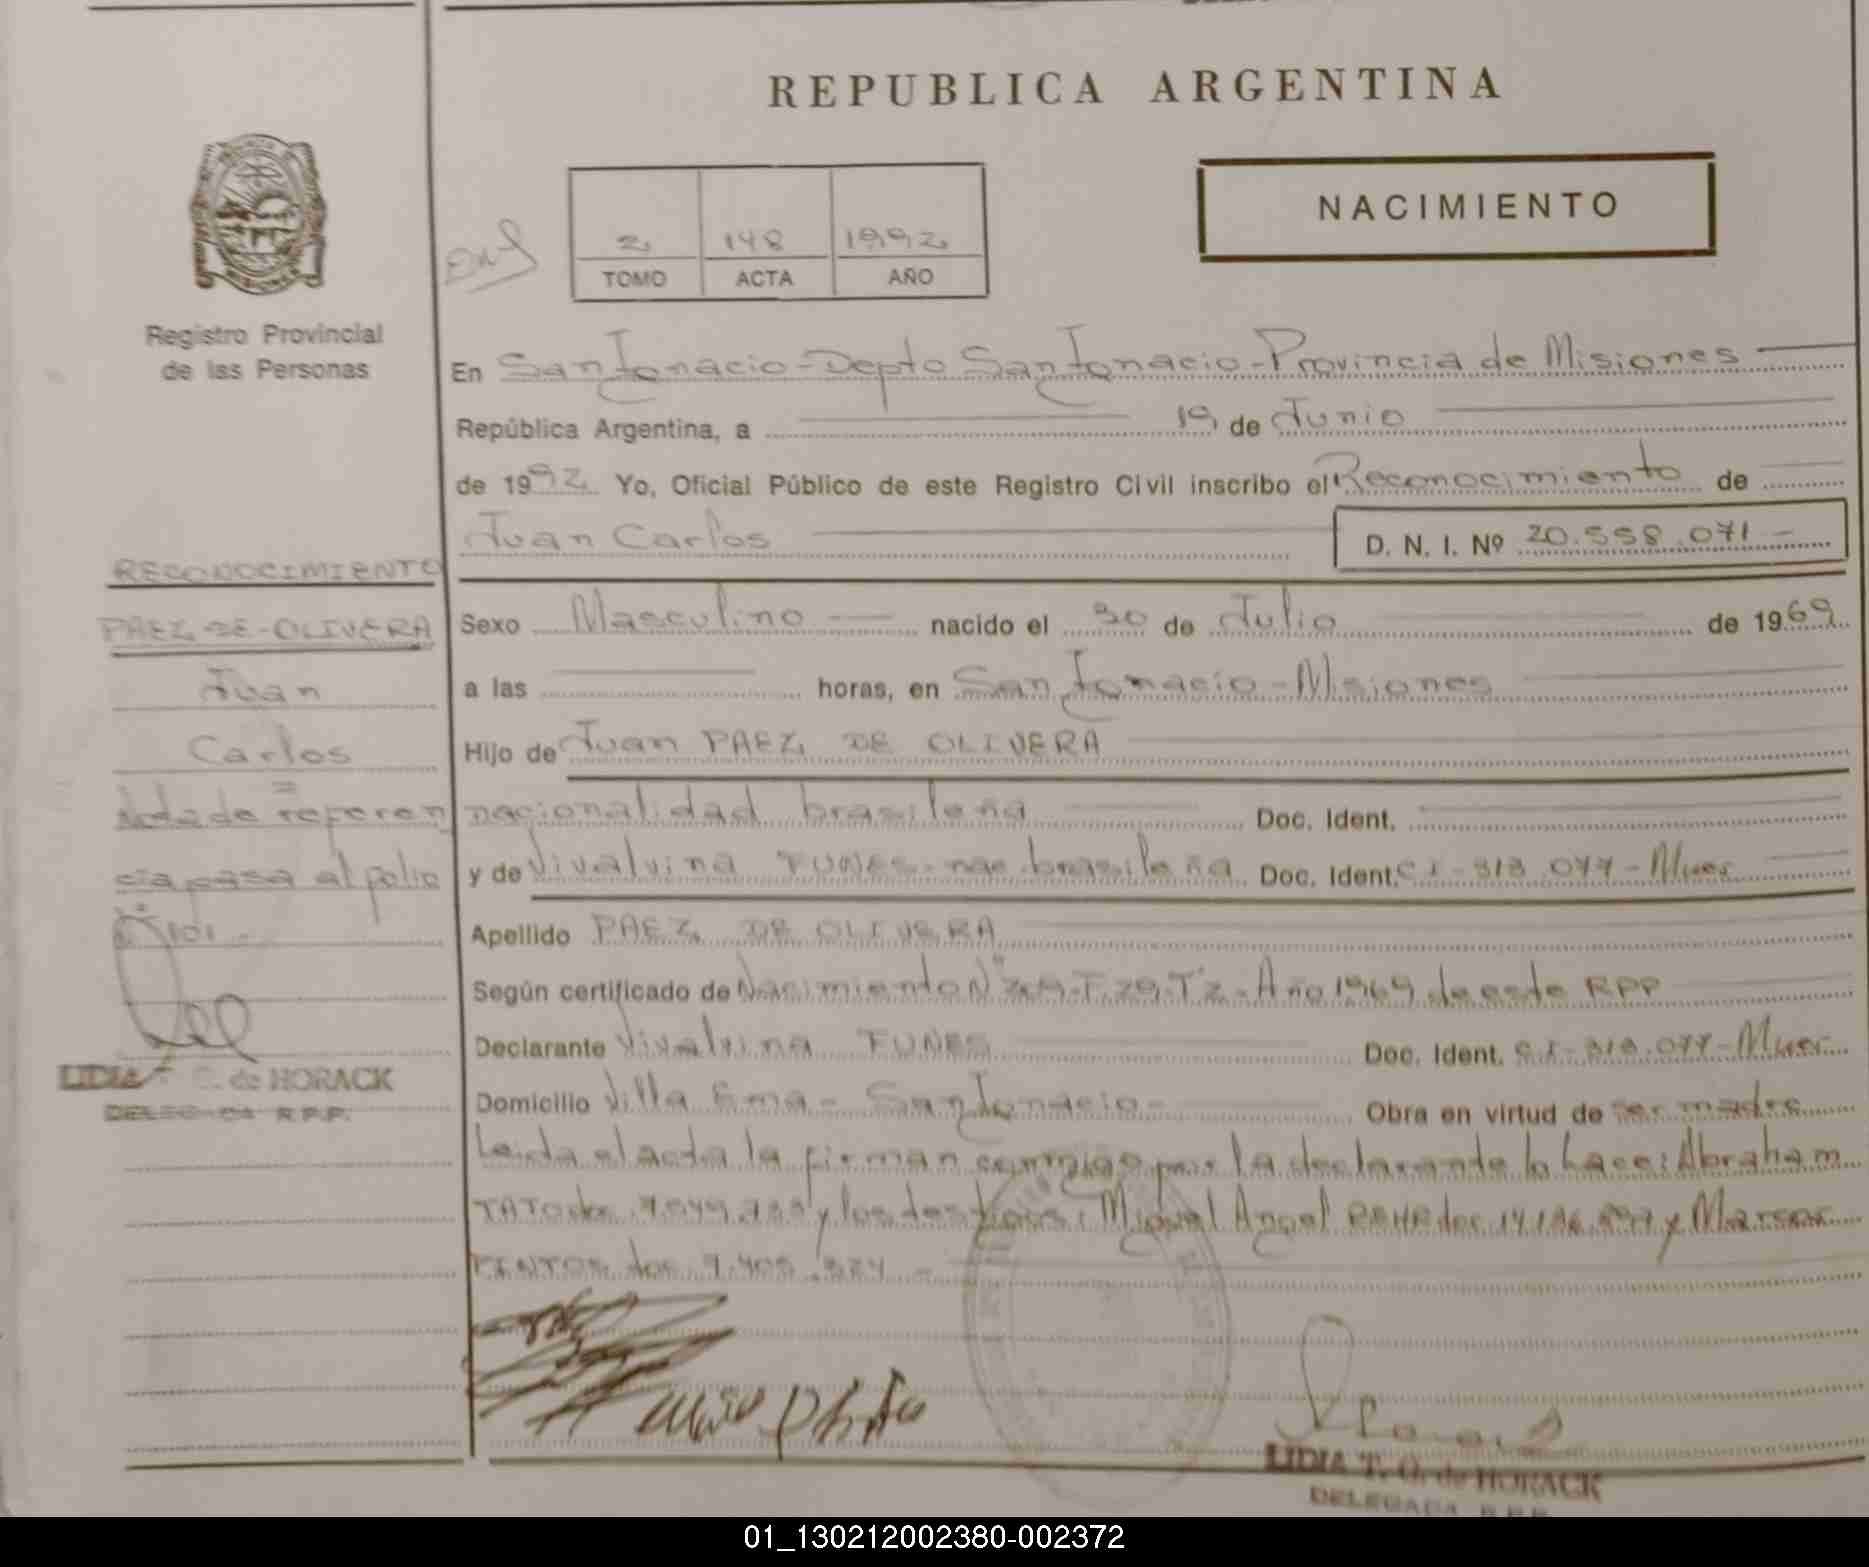 REPUBLICA ARGENTINA
NACIMIENTO
2 148 1992
TOMO ACTA AÑO
Registro Provincial
de las Personas
En San Ignacio - Depto San Ignacio - Provincia de Misiones
República Argentina, a 19 de Junio
de 1992 Yo, Oficial Público de este Registro Civil inscribo el Reconocimiento de
Juan Carlos D. N. I. Nº 20.558.071 -
RECONOCIMIENTO
PAEZ DE OLIVERA
Juan
Carlos
Nota de referen
cia pasa al folio
101 -
LIDIA de HORACK
DELEGADA R.P.P.
Sexo Masculino nacido el 30 de Julio de 1969
a las horas, en San Ignacio - Misiones
Hijo de Juan PAEZ DE OLIVERA
nacionalidad brasileña Doc. Ident.
y de Vivalvina FUNES - nac brasileña Doc. Ident. CI - 313.077 - Mnes
Apellido PAEZ DE OLIVERA
Según certificado de Nacimiento Nº Año 1969 de este RPP
Declarante Vivalvina FUNES Doc. Ident. C I - 313.077 - Mnes
Domicilio Villa Ema - San Ignacio - Obra en virtud de ser madre
Leida el acta la firman conmigo por la declarante lo hace: Abraham
TATO doc y los testigos: Miguel Angel doc y
doc
LIDIA T. O. de HORACK
DELEGADA R.P.P.
01_130212002380-002372